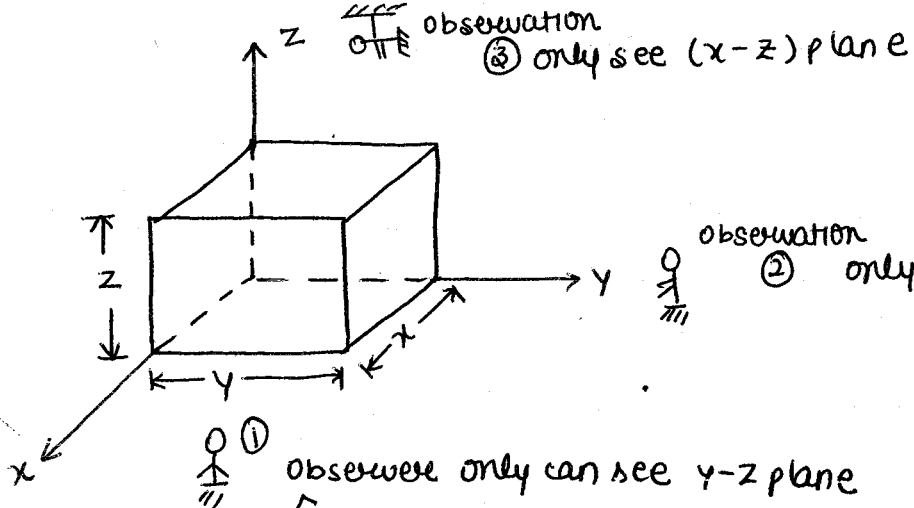 Z
observation
③ only see (x-z) plane
observation
② only
Z
Y
x
Y
X
①
observere only can see y-z plane